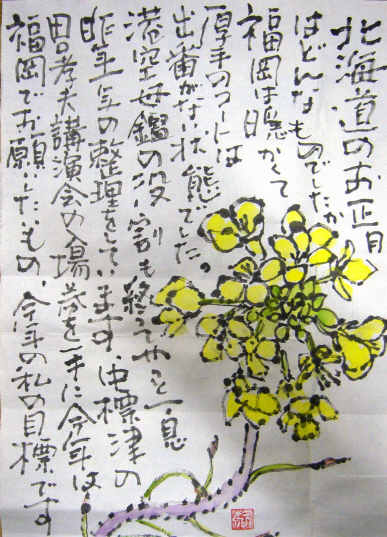 北海道のお正月
はどんなものでしたか
福岡は暖かくて
厚手のコートは
出番がない状態でした。
港空母鑑の役割も終ってやっと一息
昨年一年の整理をしています。中標津の
田孝夫講演会の場を手に今年は
福岡でお願したいもの、今年の私の目標です